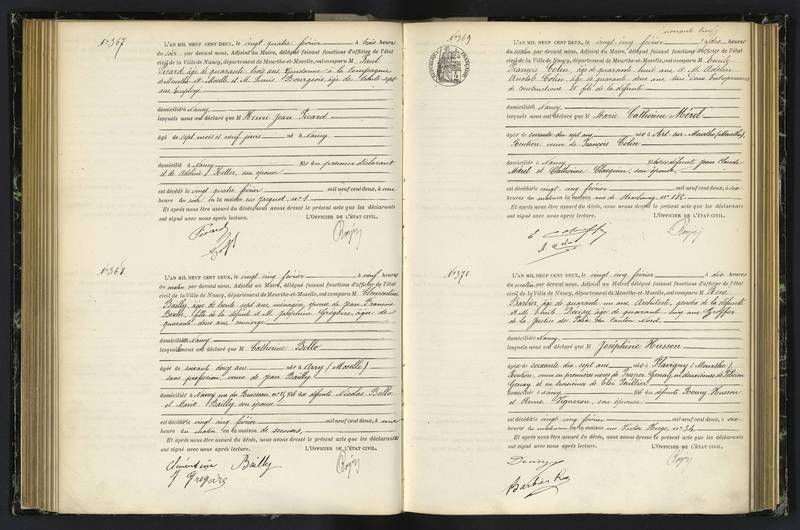 N° 367
L'AN MIL NEUF CENT DEUX, le vingt quatre février à trois heures
du soir par devant nous, Adjoint au Maire, délégué faisant fonctions d'officier de l'état
civil de la Ville de Nancy, département de Meurthe-et-Moselle, ont comparu M. Paul
Picard, âgé de quarante trois ans,
et M. Louis Bourgeois, âgé de
ans employé
domiciliés à Nancy
lesquels nous ont déclaré que M Henri Jean Picard
âgé de sept mois et neuf jours né à Nancy
domicilié à Nancy fils du premier déclarant
et de Adeline son épouse
est décédé le vingt quatre février mil neuf cent deux, à une
heure du soir en la maison rue Jacquot, n° 1
Et après nous être assuré du décès, nous avons dressé le présent acte que les déclarants
ont signé avec nous après lecture. L'OFFICIER DE L'ÉTAT CIVIL.
Picard
N° 368
L'AN MIL NEUF CENT DEUX, le vingt cinq février à neuf heures
du matin par devant nous, Adjoint au Maire, délégué faisant fonctions d'officier de l'état
civil de la Ville de Nancy, département de Meurthe-et-Moselle, ont comparu M Clémentine
Bailly, âgée de trente sept ans, ménagère, épouse de Jean François
fille de la défunte et M. Joséphine Grégoire, âgée de
quarante deux ans, concierge
domiciliés à Nancy
lesquels nous ont déclaré que M Catherine Bello
âgée de soixante douze ans née à Arry (Moselle)
sans profession, veuve de Jean Bailly
domiciliée à Nancy, rue du n° 15, fille des défunts Nicolas Bello
et Marie Bailly, son épouse
est décédée le vingt cinq février mil neuf cent deux, à une
heure du matin en la maison de secours
Et après nous être assuré du décès, nous avons dressé le présent acte que les déclarants
ont signé avec nous après lecture. L'OFFICIER DE L'ÉTAT CIVIL.
Clementine Bailly
J Grégoire
N° 369
L'AN MIL NEUF CENT DEUX, le vingt cinq février à dix heures
du matin par devant nous, Adjoint au Maire, délégué faisant fonctions d'officier de l'état
civil de la Ville de Nancy, département de Meurthe-et-Moselle, ont comparu M Emile
François Colin, âgé de quarante huit ans et M. Adolin
Colin, âgé de quarante deux ans, tous deux Entrepreneurs
de constructions et fils de la défunte
domiciliés à Nancy
lesquels nous ont déclaré que M Marie Catherine Mérel
âgée de soixante dix sept ans née à Art-sur-Meurthe (Meurthe),
Rentière, veuve de François Colin
domiciliée à Nancy fille des défunts Jean Claude
Mérel et Catherine son épouse
est décédée le vingt cinq février mil neuf cent deux, à six
heures du matin en la maison, rue de Strasbourg, n° 182
Et après nous être assuré du décès, nous avons dressé le présent acte que les déclarants
ont signé avec nous après lecture. L'OFFICIER DE L'ÉTAT CIVIL.
N° 370
L'AN MIL NEUF CENT DEUX, le vingt cinq février à dix heures
du matin par devant nous, Adjoint au Maire, délégué faisant fonctions d'officier de l'état
civil de la Ville de Nancy, département de Meurthe-et-Moselle, ont comparu M René
Barbier, âgé de quarante un ans, Architecte, gendre de la défunte
et M. Emile âgé de quarante cinq ans Greffier
de la Justice de Paix du Canton Nord
domiciliés à Nancy
lesquels nous ont déclaré que M Joséphine Husson
âgée de soixante dix sept ans née à Flavigny (Meurthe),
Rentière, veuve en premières noces de Prosper en deuxièmes de
et en troisièmes de
domiciliée à Nancy fille des défunts Rémy Husson
et Anne Vigneron, son épouse
est décédée le vingt cinq février mil neuf cent deux, à six
heures du matin en la maison rue Victor Hugo, n° 34
Et après nous être assuré du décès, nous avons dressé le présent acte que les déclarants
ont signé avec nous après lecture. L'OFFICIER DE L'ÉTAT CIVIL.
Barbier